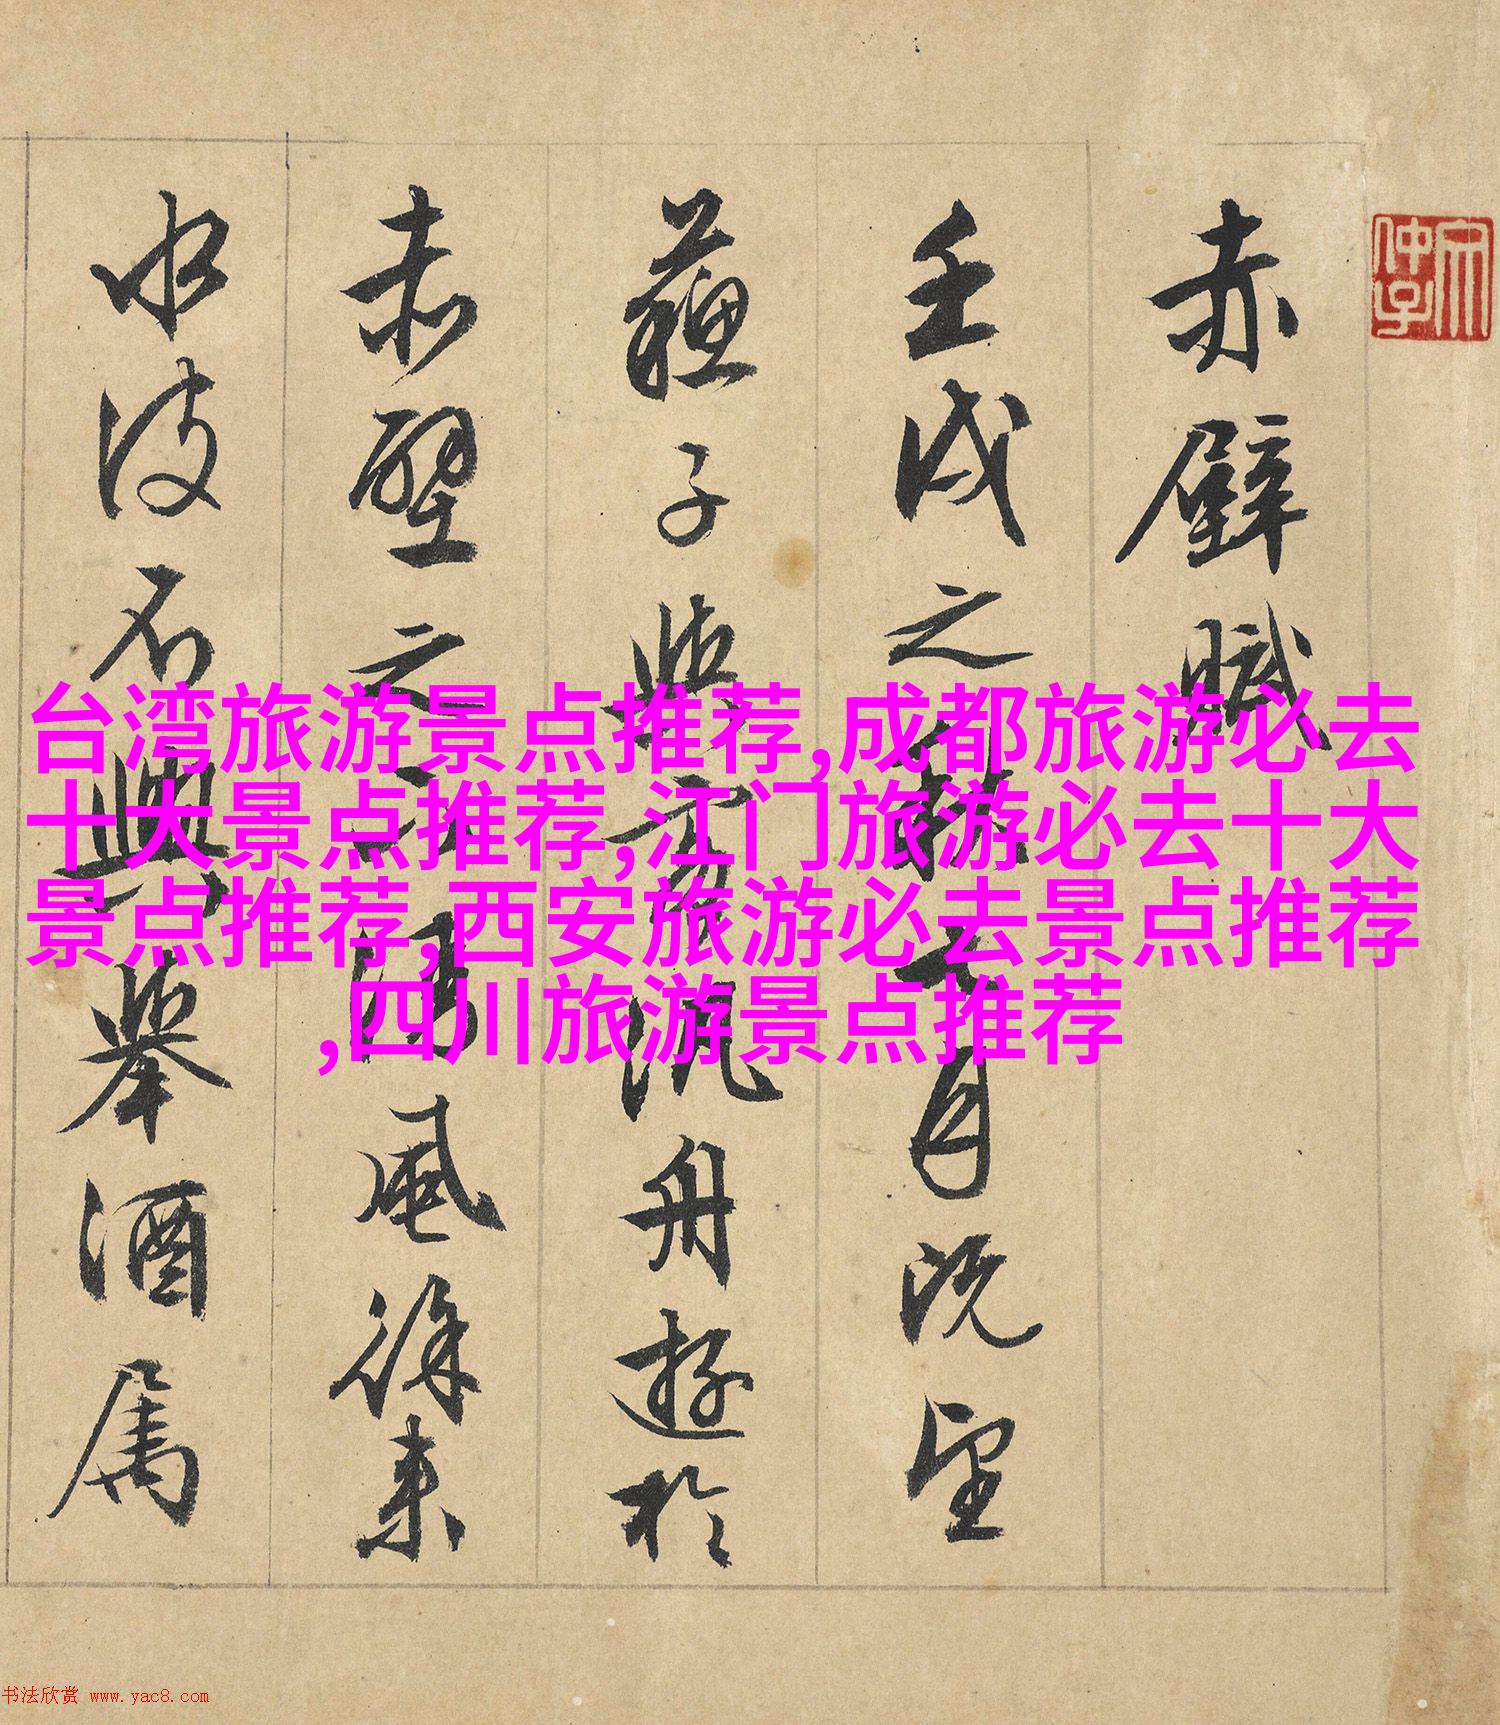 赤壁賦
壬戌之秋七月既望
蘇子與客汎舟遊於
赤壁之下清風徐來
水波不興舉酒屬
台湾旅游景点推荐,成都旅游必去
十大景点推荐,江门旅游必去十大
景点推荐,西安旅游必去景点推荐
,四川旅游景点推荐
书法欣赏 www.yac8.com